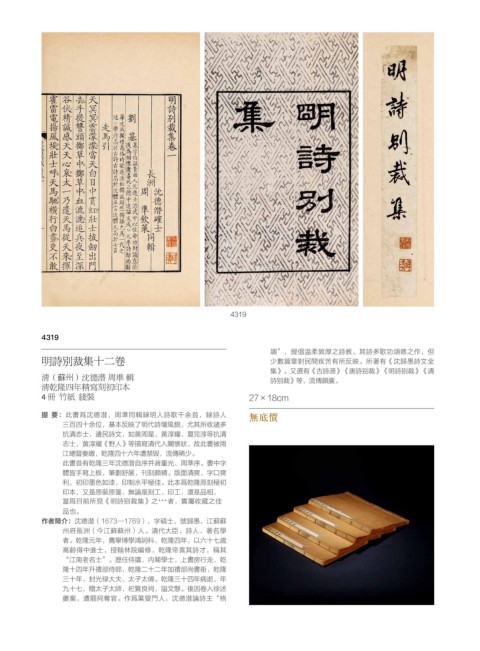 明詩別裁集卷一
長洲
沈德潛確士
周準欽萊
同輯
劉基
走馬引
天冥冥雲濛濛當天白日中貫虹壯士拔劍出門
去手提讐頭擲草中擲草中血漉漉追兵夜至深
谷伏精誠感天天心哀太一乃遣天馬從天來揮
霍雷電揚風埃壯士呼天馬馳橫行白晝吏不敢
明詩別裁
集
明詩別裁集
4319
4319
明詩別裁集十二卷
清（蘇州）沈德潛 周準 輯
清乾隆四年精寫刻初印本
4 冊 竹紙 綫裝
提 要：此書爲沈德潛，周準同輯錄明人詩歌千余首，錄詩人
三百四十余位，基本反映了明代詩壇風貌，尤其所收諸多
抗清志士，遺民詩文，如黃周星，黃淳耀，夏完淳等抗清
志士，黃淳耀《野人》等描寫清代人關慘狀，故此書被兩
江總督奏繳，乾隆四十六年遭禁毀，流傳稀少。
此書首有乾隆三年沈德潛自序并蔣重光、周準序，書中字
體皆手寫上板，筆劃舒展，刊刻精細，版面清爽，字口鋒
利，初印墨色如漆，印制水平極佳。此本爲乾隆原刻極初
印本，又是原裝原簽，無論是刻工，印工，還是品相，
當爲目前所見《明詩別裁集》之***者，實屬收藏之佳
品也。
作者簡介：沈德潛（1673—1769），字碻士，號歸愚，江蘇蘇
州府長洲（今江蘇蘇州）人。清代大臣，詩人、著名學
者。乾隆元年，薦舉博學鴻詞科，乾隆四年，以六十七歲
高齡得中進士，授翰林院編修，乾隆帝喜其詩才，稱其
“江南老名士”。歷任侍讀、内閣學士、上書房行走，乾
隆十四年升禮部侍郎，乾隆二十二年加禮部尚書銜，乾隆
三十年，封光祿大夫、太子太傅。乾隆三十四年病逝，年
九十七，贈太子太師，祀賢良祠，謚文慤。後因卷入徐述
夔案，遭罷祠奪官。作爲葉燮門人，沈德潛論詩主“格
調”，提倡溫柔敦厚之詩教。其詩多歌功頌德之作，但
少數篇章對民間疾苦有所反映。所著有《沈歸愚詩文全
集》。又選有《古詩源》《唐詩別裁》《明詩別裁》《清
詩別裁》等，流傳頗廣。
27×18cm
無底價